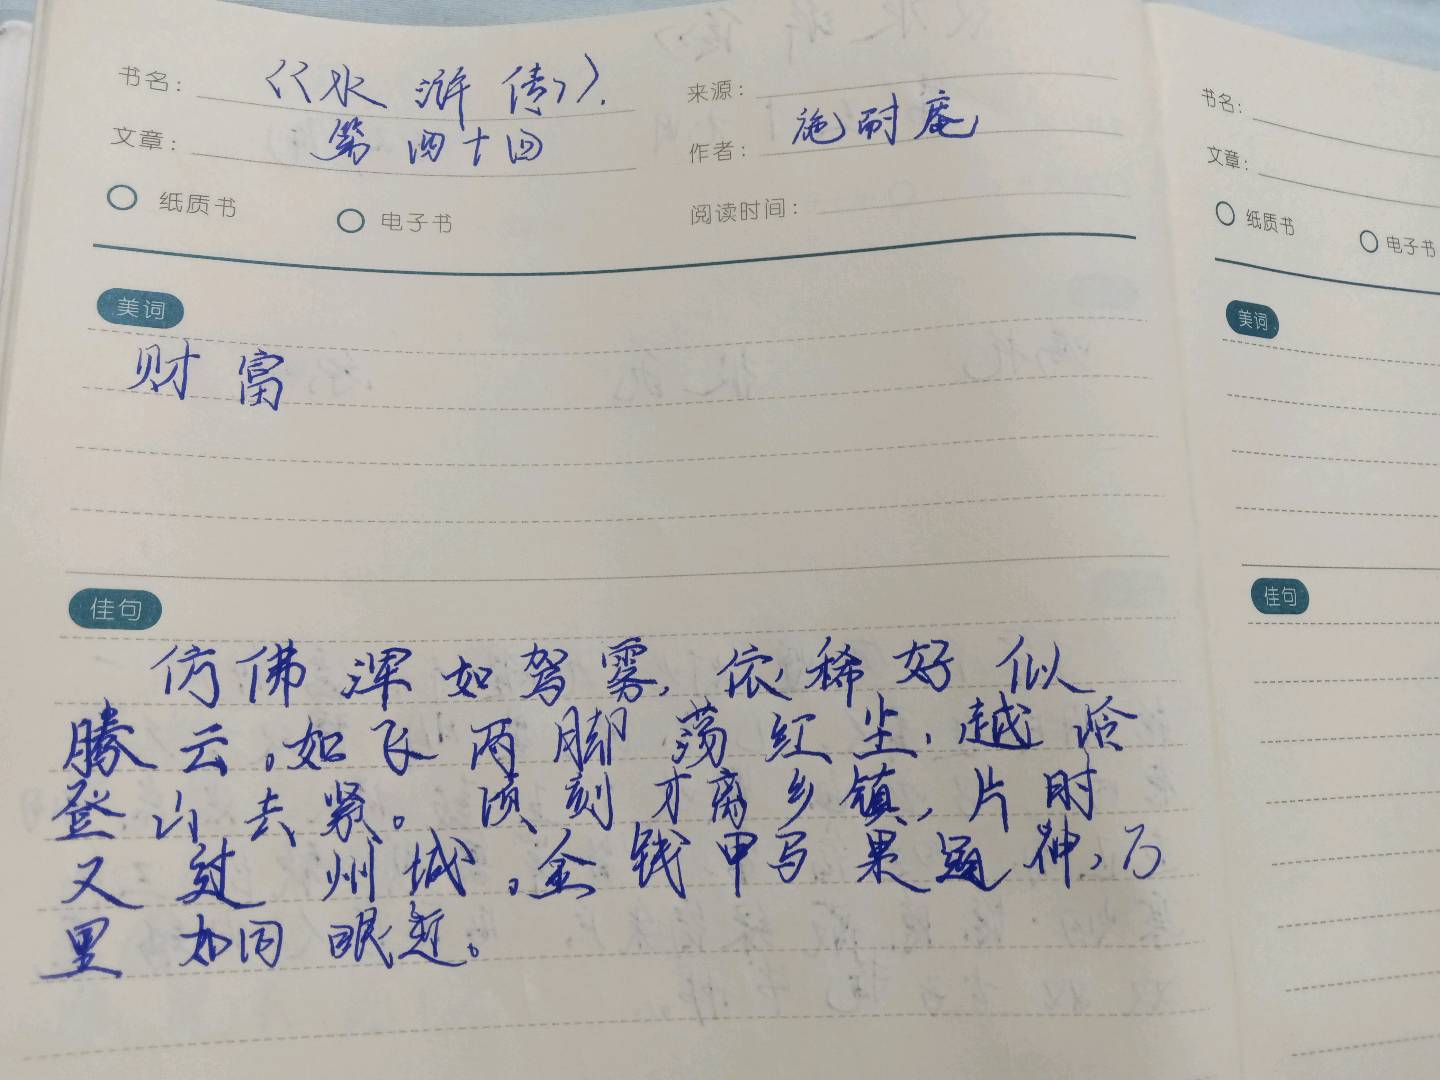 书名: 《水浒传》.
来源:
文章: 第四十回
作者: 施耐庵
纸质书
电子书
阅读时间:
美词
财富
佳句
仿佛浑如驾雾,依稀好似
腾云。如飞两脚荡红尘,越岭
登山去紧。顷刻才离乡镇,片时
又过州城。金钱甲马果通神,万
里如同眼近。
书名:
文章:
纸质书
电子书
美词
佳句